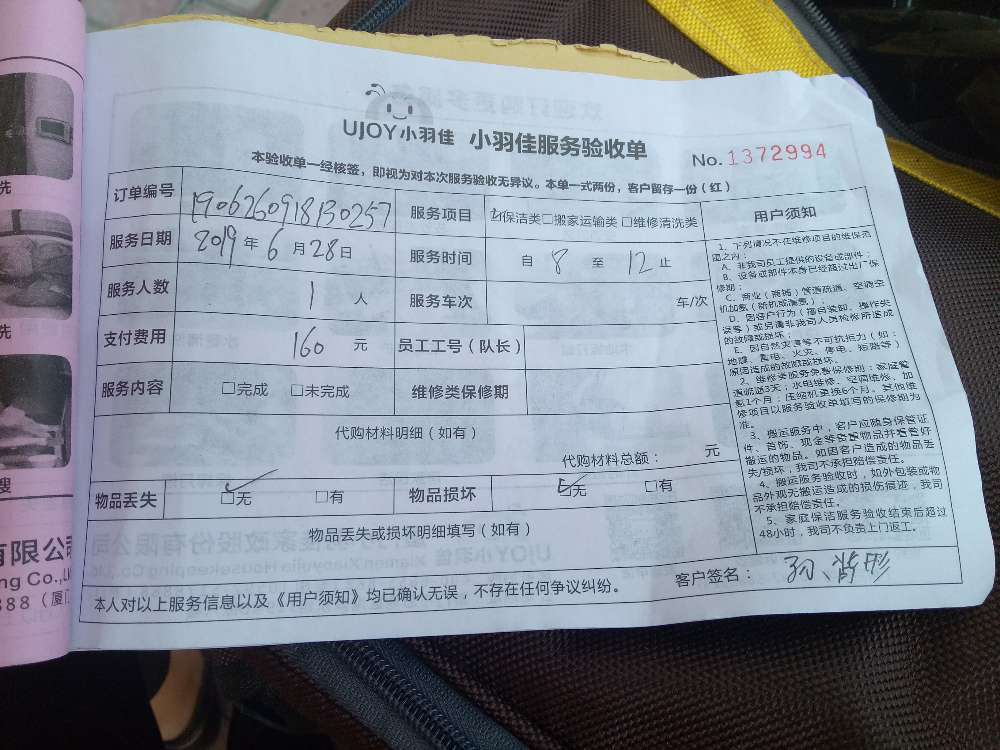 UJOY小羽佳 小羽佳服务验收单 No.1372994
本验收单一经核签，即视为对本次服务验收无异议。本单一式两份，客户留存一份（红）
订单编号 1906260918130257 服务项目 ☑保洁类□搬家运输类□维修清洗类
服务日期 2019年6月28日 服务时间 自 8 至 12 止
服务人数 1 人 服务车次 车/次
支付费用 160 元 员工工号（队长）
服务内容 □完成 □未完成 维修类保修期
代购材料明细（如有）
代购材料总额： 元
物品丢失 ☑无 □有 物品损坏 ☑无 □有
物品丢失或损坏明细填写（如有）
本人对以上服务信息以及《用户须知》均已确认无误，不存在任何争议纠纷。 客户签名：
用户须知
1、下列情况不在维修项目的维保范
围之内：
A、非我司员工提供的设备或部件；
B、设备或部件本身已经超过出厂保
修期；
C、商业（商铺）管道疏通、空调加
机加氨（新机或漏氨）；
D、因客户行为（擅自装卸、操作失
误等）或另请非我司人员检修所造成
的故障或损坏；
E、因自然灾害等不可抗拒力（如：
地震、雷电、火灾、停电、短路等）
原因造成的故障或损坏。
2、维修类服务免费保修期：家庭管
道疏通3天；水电维修、空调维修、加
氨1个月；压缩机更换6个月。其他维
修项目以服务验收单填写的保修期为
准。
3、搬运服务中，客户应随身保管证
件、首饰、现金等贵重物品并看管好
搬运的物品。如因客户造成的物品丢
失/损坏，我司不承担赔偿责任。
4、搬运服务验收时，如外包装或物
品外观无搬运造成的损伤痕迹，我司
不承担赔偿责任。
5、家庭保洁服务验收结束后超过
48小时，我司不负责上门返工。
先
先
搜
有限公司
ng Co.,L
888（厦门